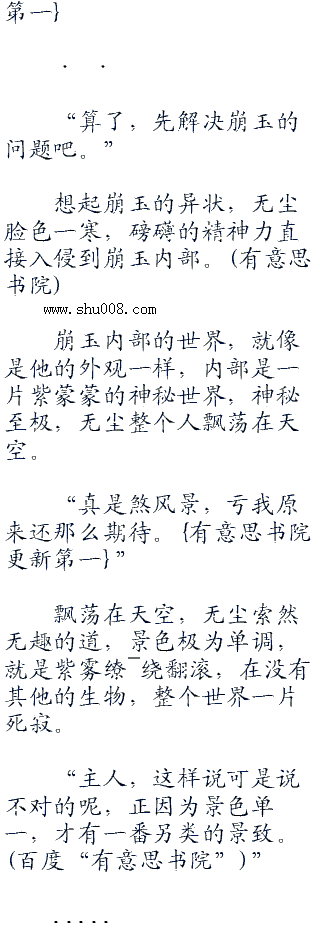 第一}
. .
“算了，先解决崩玉的
问题吧。”
想起崩玉的异状，无尘
脸色一寒，磅礴的精神力直
接入侵到崩玉内部。(有意思
书院)
www.shu008.com
崩玉内部的世界，就像
是他的外观一样，内部是一
片紫蒙蒙的神秘世界，神秘
至极，无尘整个人飘荡在天
空。
“真是煞风景，亏我原
来还那么期待。{有意思书院
更新第一}”
飘荡在天空，无尘索然
无趣的道，景色极为单调，
就是紫雾缭¯绕翻滚，在没有
其他的生物，整个世界一片
死寂。
“主人，这样说可是说
不对的呢，正因为景色单
一，才有一番另类的景致。
(百度“有意思书院”)”
.....